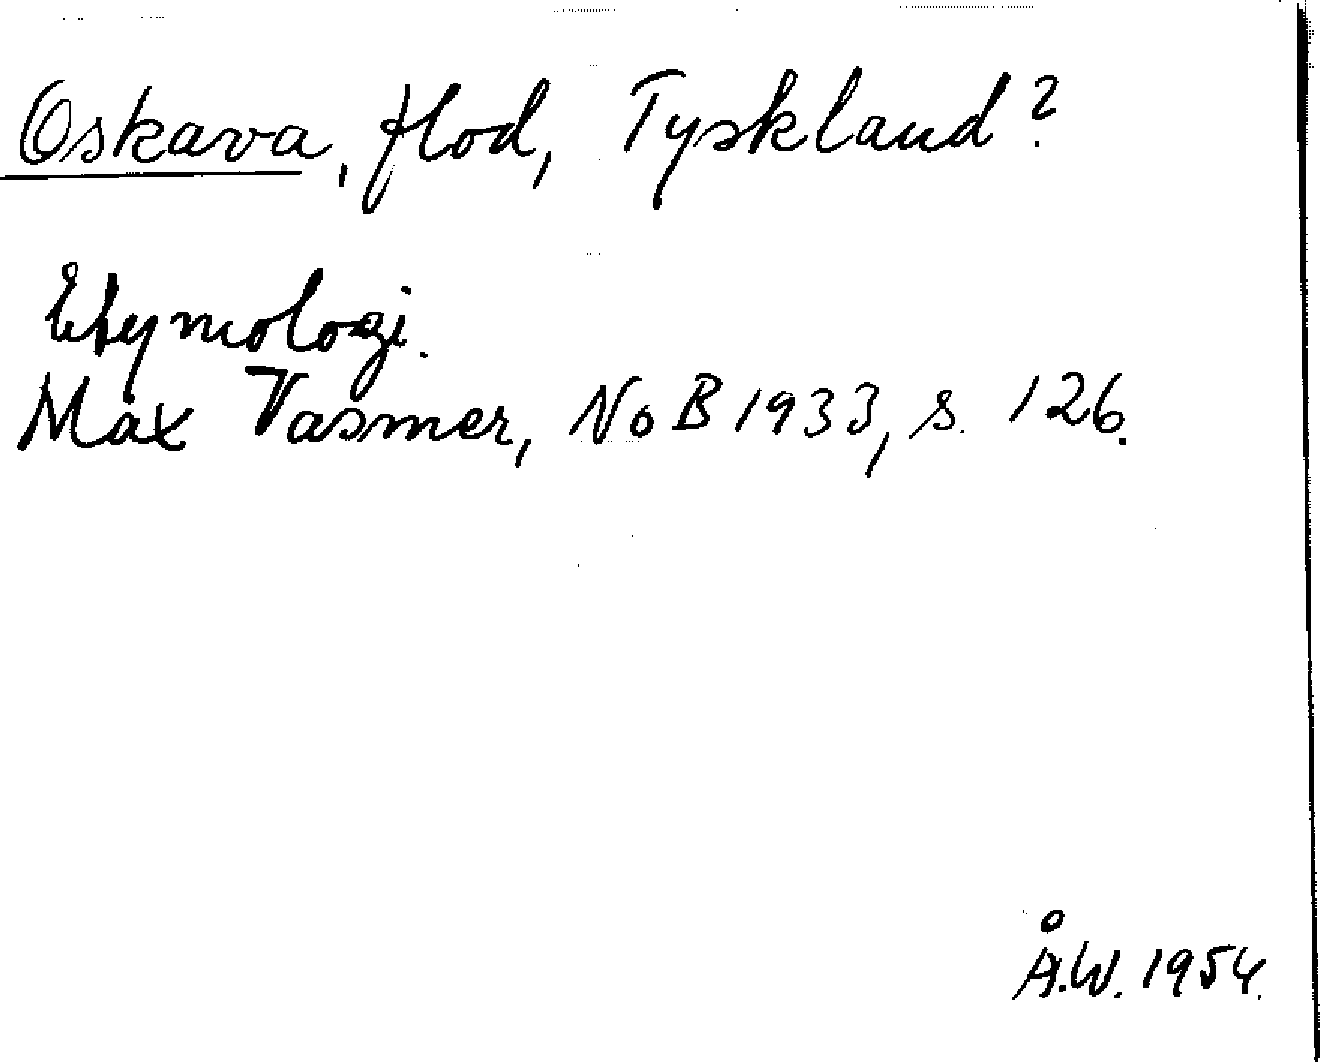 Oskava, flod, Tyskland?
Etymologi.
Max Vasmer, NoB 1933, s. 126.
Å.W. 1954.